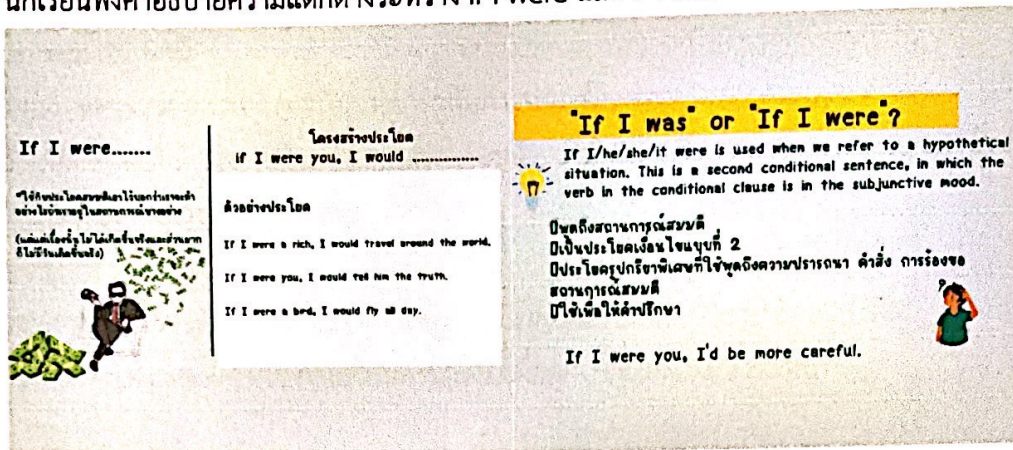 If I were.......
"ใช้กับประโยคสมมติเอาไว้บอกว่าเราจะทำ
อย่างไรถ้าเราอยู่ในสถานการณ์บางอย่าง
(แต่แต่เรื่องนั้นไม่ได้เกิดขึ้นจริงและส่วนมาก
ก็ไม่มีวันเกิดขึ้นจริง)
โครงสร้างประโยค
if I were you, I would ...............
ตัวอย่างประโยค
If I were a rich, I would travel around the world.
If I were you, I would tell him the truth.
If I were a bed, I would fly all day.
"If I was" or "If I were"?
If I/he/she/it were is used when we refer to a hypothetical
situation. This is a second conditional sentence, in which the
verb in the conditional clause is in the subjunctive mood.
พูดถึงสถานการณ์สมมติ
เป็นประโยคเงื่อนไขแบบที่ 2
ประโยครูปกริยาพิเศษที่ใช้พูดถึงความปรารถนา คำสั่ง การร้องขอ
สถานการณ์สมมติ
ใช้เพื่อให้คำปรึกษา
If I were you, I'd be more careful.